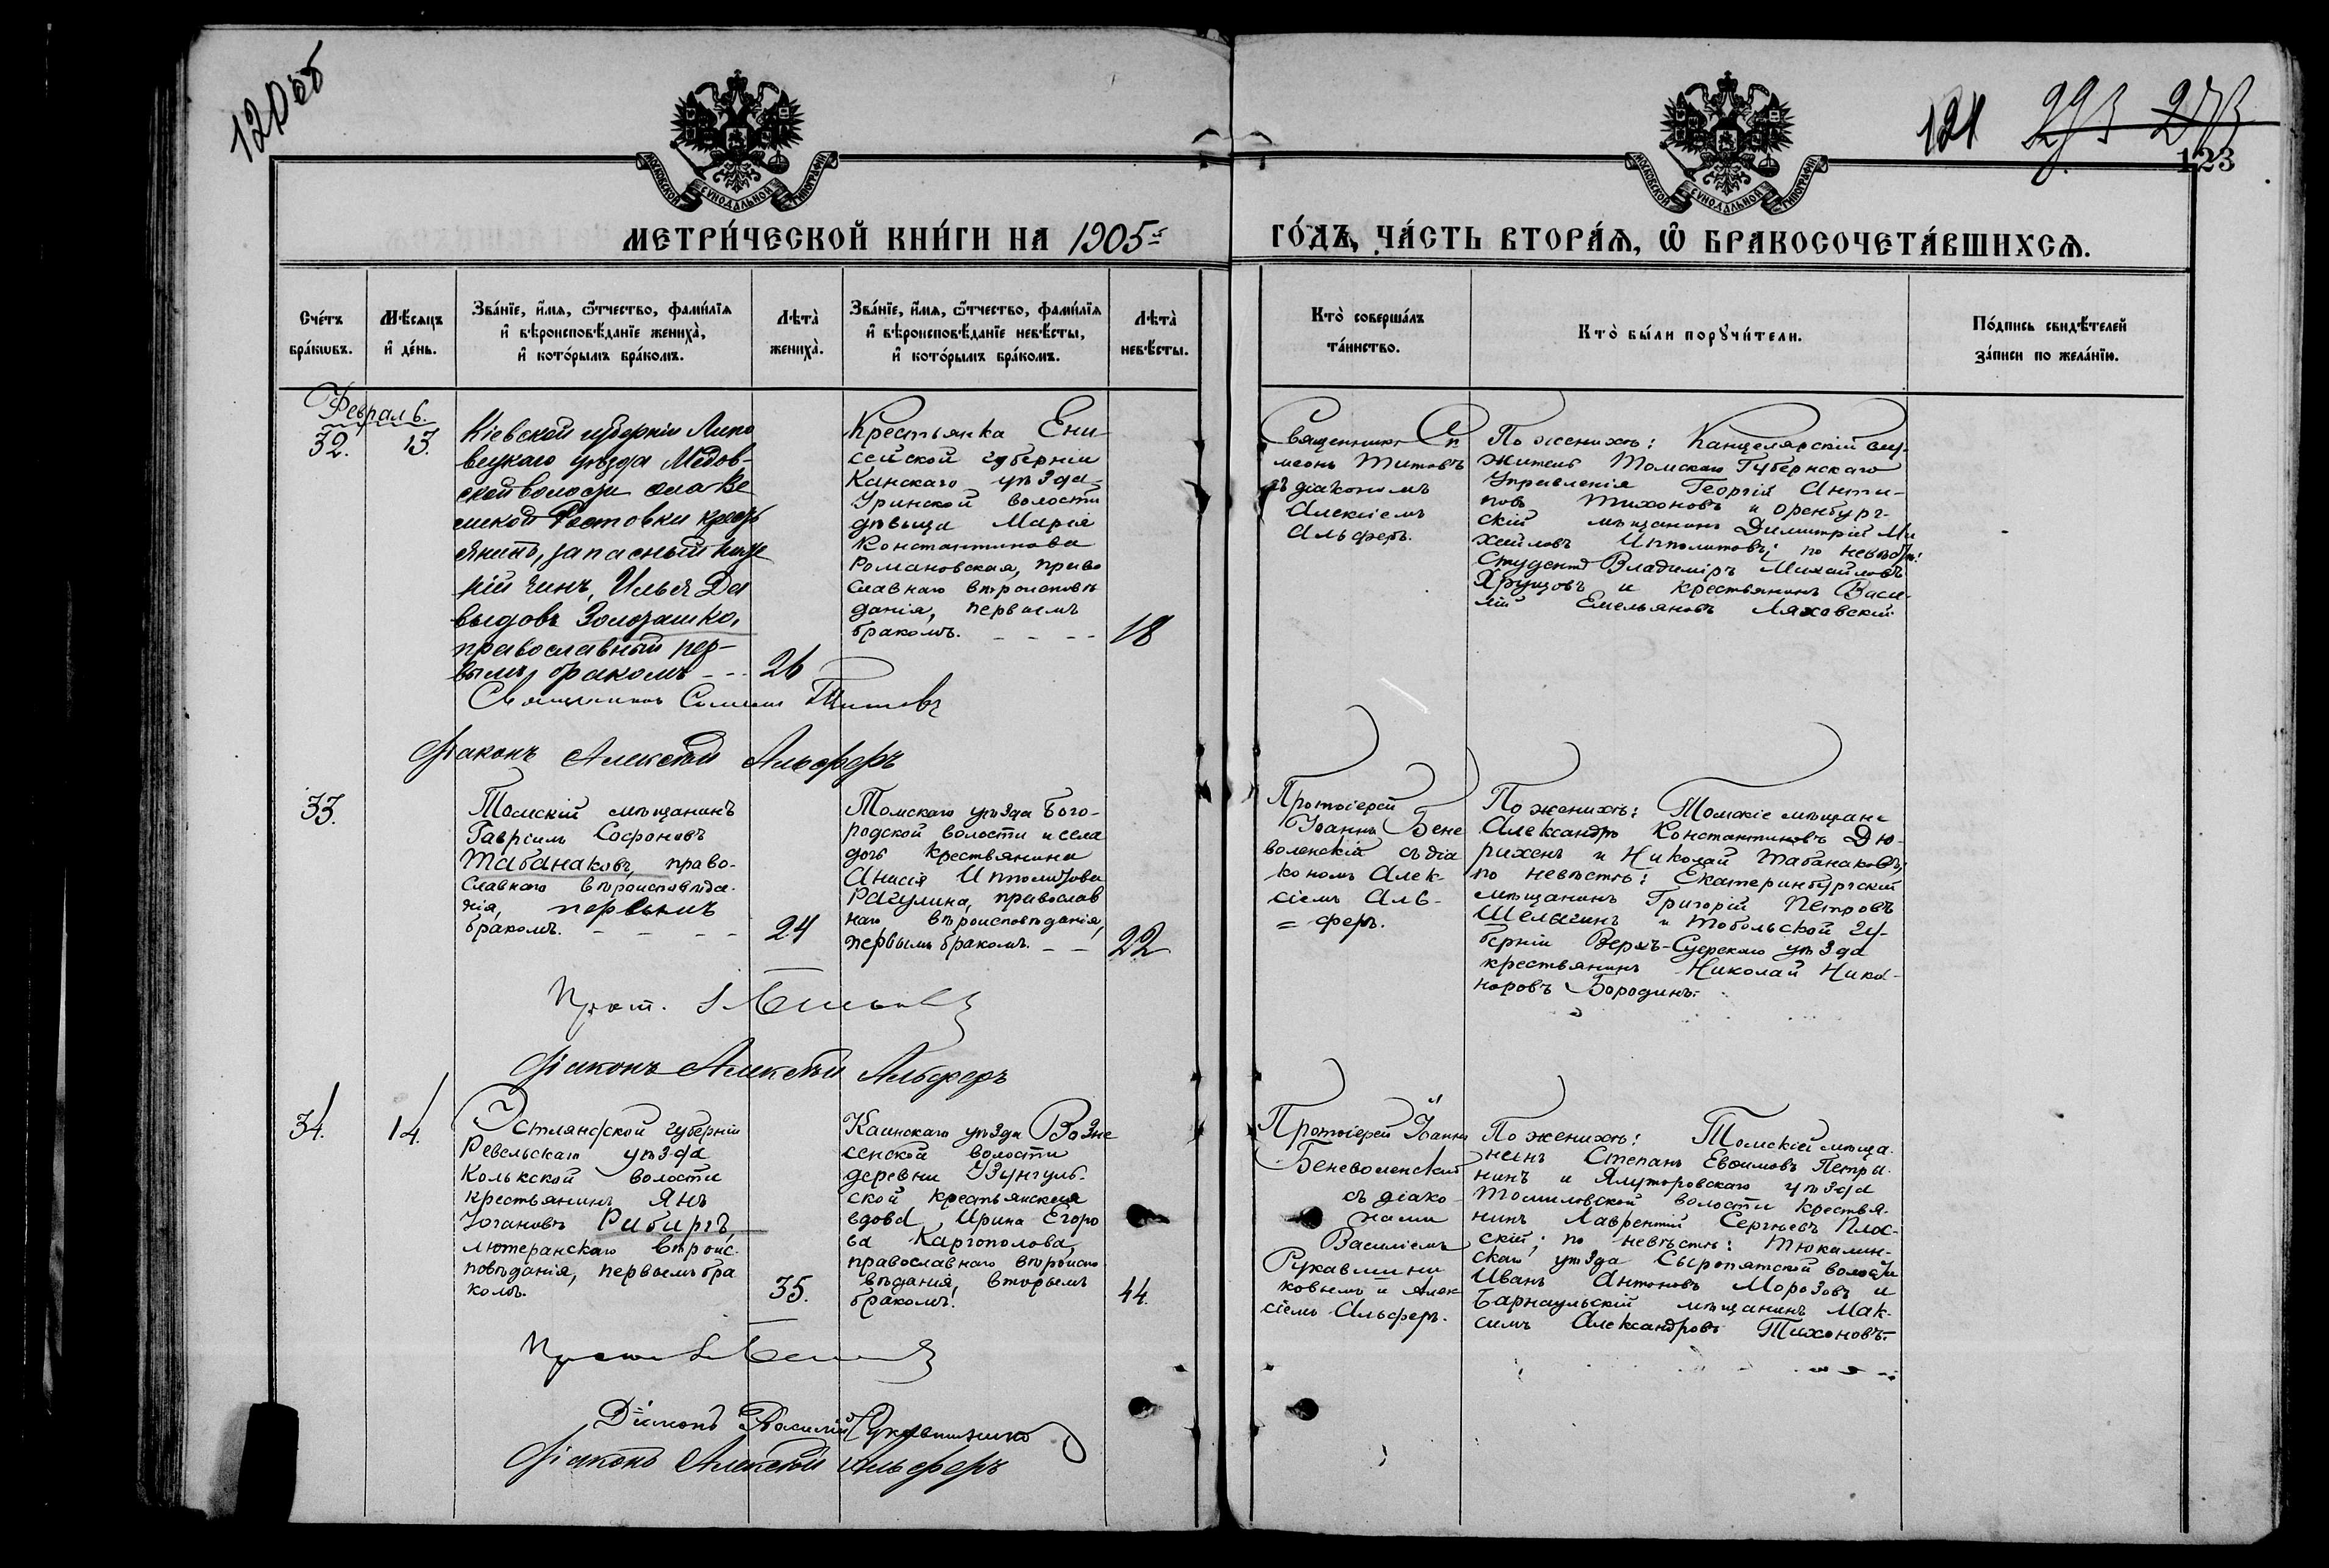 120 об
121
293 273
123
МОСКОВСКОЙ СѴНОДАЛЬНОЙ ТИПОГРАФІИ
МОСКОВСКОЙ СѴНОДАЛЬНОЙ ТИПОГРАФІИ
МЕТРИ́ЧЕСКОЙ КНИ́ГИ НА 1905
ГО́ДЪ, ЧА́СТЬ ВТОРА́Ѧ, Ѽ БРАКОСОЧЕТА́ВШИХСѦ.
Сче́тъ
бра́кѡвъ.
Мѣ́сѧцъ
и҆ де́нь.
Зва́нїе, и҆́мѧ, ѻ҆́тчество, фами́лїѧ
и҆ вѣроисповѣ́данїе жениха̀,
и҆ кото́рымъ бра́комъ.
Лѣта̀
жениха̀.
Зва́нїе, и҆́мѧ, ѻ҆́тчество, фами́лїѧ
и҆ вѣроисповѣ́данїе невѣ́сты,
и҆ кото́рымъ бра́комъ.
Лѣта̀
невѣ́сты.
Кто̀ соверша́лъ
та́инство.
Кто̀ бы́ли порꙋчи́тели.
По́дпись свидѣ́телей
за́писи по жела́нїю.
Февраль.
32.
13.
Кіевской губерніи Липо
вецкаго уѣзда Медов-
ской волости
Ростовки кресть
янинъ, запасный ниж
ній чинъ, Илья Да
выдовъ Золоташко,
православный пер-
вымъ бракомъ
26
Крестьянка Ени-
сейской губерніи
Канскаго уѣзда
Уринской волости
дѣвица Марія
Константинова
Романовская, право
славнаго вѣроисповѣ
данія, первымъ
бракомъ.
18
Священникъ Си
меонъ Титовъ
съ діакономъ
Алексіемъ
Альферъ.
По женихѣ: Канцелярскій слу-
житель Томскаго Губернскаго
Управленія Георгій Анти-
повъ Тихоновъ и Оренбург-
скій мѣщанинъ Димитрій Ми
хайловъ Ипполитовъ; по невѣстѣ:
Студентъ Владиміръ Михайловъ
Хрущовъ и крестьянинъ Васи-
лій Емельяновъ Ляховскій.
Священникъ Симеонъ Титовъ
Діаконъ Алексѣй Альферъ
33.
Томскій мѣщанинъ
Гавріилъ Софоновъ
Табанаковъ, право-
славнаго вѣроисповѣда-
нія, первымъ
бракомъ.
24
Томскаго уѣзда Бого-
родской волости и села
дочь крестьянина
Анисія Ипполитова
Рагулина, православ
наго вѣроисповѣданія,
первымъ бракомъ.
22
Протоіерей
Іоаннъ Бене
воленскій съ діа
кономъ Алек-
сіемъ Аль-
= феръ.
По женихѣ: Томскіе мѣщане
Александръ Константиновъ Дю-
рихенъ и Николай Табанаковъ;
по невѣстѣ: Екатеринбургскій
мѣщанинъ Григорій Петровъ
Шелыгинъ и Тобольской гу-
берніи Верхъ-Суерскаго уѣзда
крестьянинъ Николай Нико-
норовъ Бородинъ.
Прот.
Діаконъ Алексѣй Альферъ
34.
14.
Эстляндской губерніи
Ревельскаго уѣзда
Колькской волости
крестьянинъ Янъ
Югановъ Рибиргъ
лютеранскаго вѣроис-
повѣданія, первымъ бра
комъ.
35.
Каинскаго уѣзда Возне
сенской волости
деревни Узунгуль-
ской крестьянская
вдова, Ирина Егоро
ва Каргополова,
православнаго вѣроиспо
вѣданія, вторымъ
бракомъ.
44.
Протоіерей Іоаннъ
Беневоленскій
съ діако-
нами
Василіемъ
Рукавишни
ковымъ и Алек
сіемъ Альферъ.
По женихѣ: Томскій мѣща-
нинъ Степанъ Евѳимовъ Петры-
нинъ и Ялуторовскаго уѣзда
Томиловской волости крестья-
нинъ Лаврентій Сергѣевъ Плос-
скій; по невѣстѣ: Тюкалин-
скаго уѣзда Сыропятской волости
Иванъ Антоновъ Морозовъ и
Барнаульскій мѣщанинъ Мак-
симъ Александровъ Тихоновъ.
Діаконъ Василій Рукавишников
Діаконъ Алексѣй Альферъ